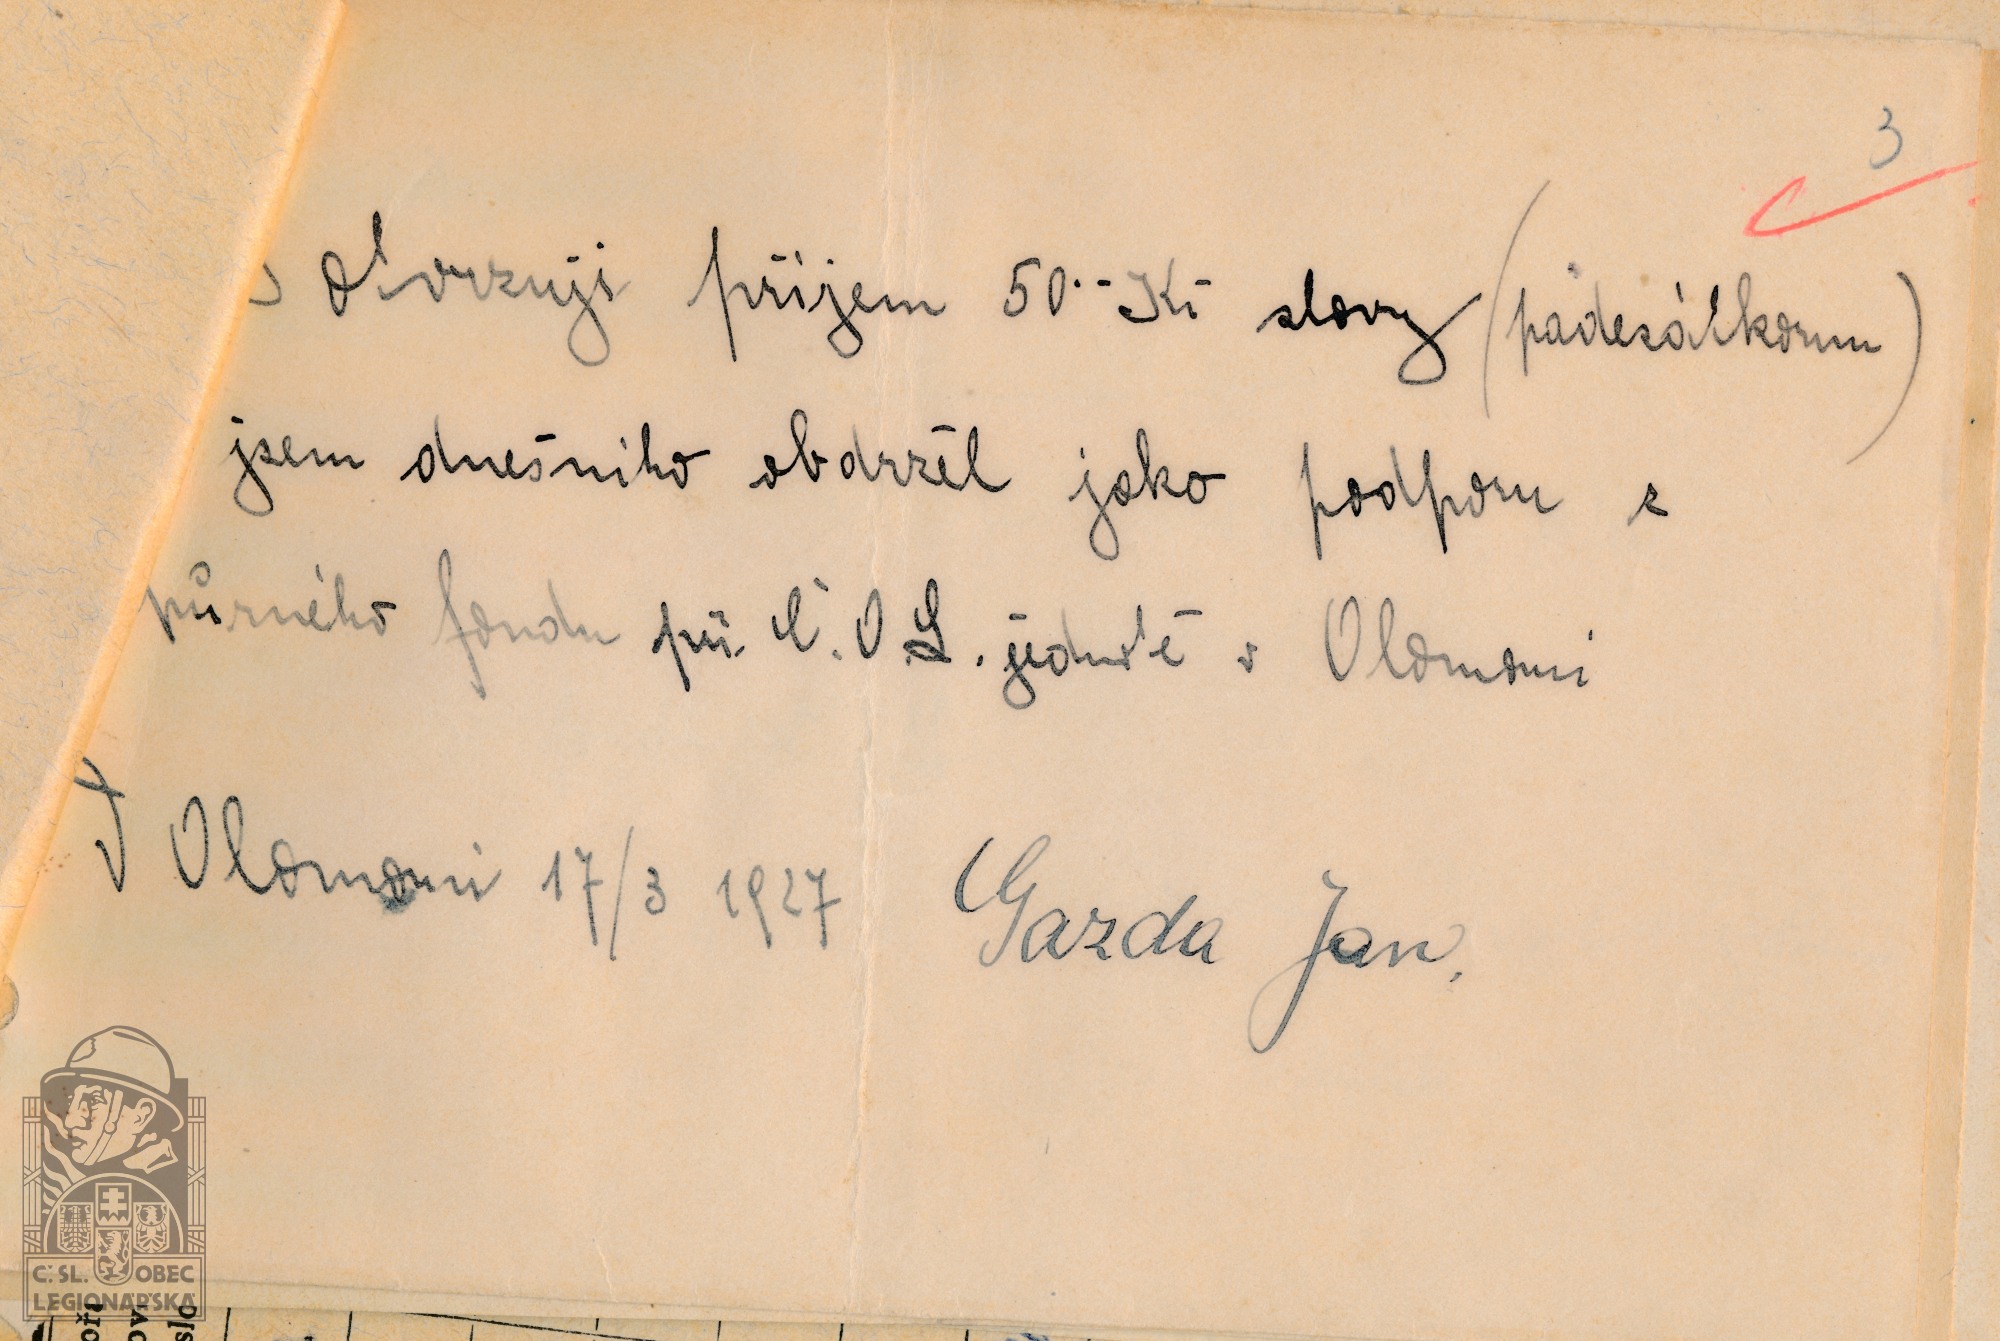 3
otvrzuji příjem 50.- Kč slovy (padesátkorun)
jsem dnešního obdržel jako podporu z
půrného fondu při. Č.O.L. jednotě v Olomouci
V Olomouci 17/3 1927 Gazda Jan.
Č.SL. OBEC
LEGIONÁŘSKÁ